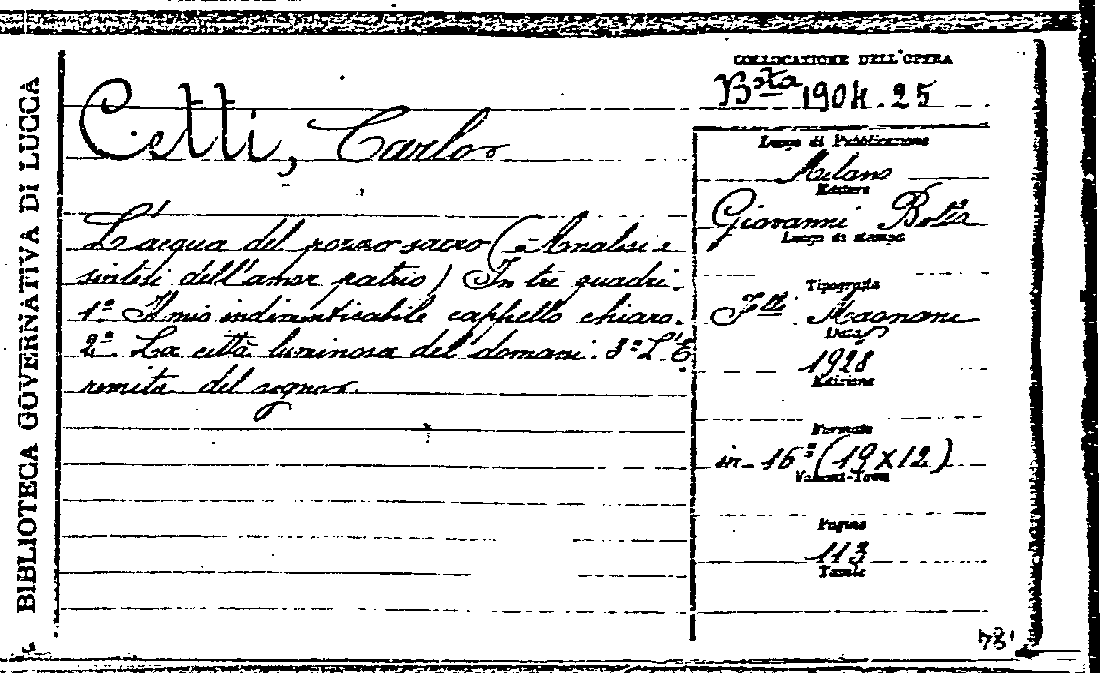 BIBLIOTECA GOVERNATIVA DI LUCCA
COLLOCAZIONE DELL'OPERA
Bta 1904.25
Cetti, Carlo
L'acqua del pozzo sacro (Analisi e
sintesi dell'amor patrio) In tre quadri.
1º Il mio indimenticabile cappello chiaro.
2º La città luminosa del domani. 3º L'E
remita del sogno.
Luogo di Pubblicazione
Milano
Editore
Giovanni Bolla
Luogo di stampa
Tipografia
Flli Magnani
Data
1928
Edizione
Formato
in-16º (19X12)
Volumi-Tomi
Pagine
113
Tavole